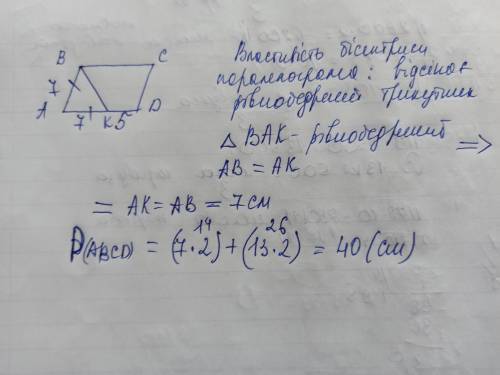 B C
7
A 7 K 5 D
Властивість бісектриси
паралелограма: відсікає
рівнобедрений трикутник
△ BAK - рівнобедрений =>
AB = AK
= AK = AB = 7 см
14 26
P(ABCD) = (7·2) + (13·2) = 40 (см)